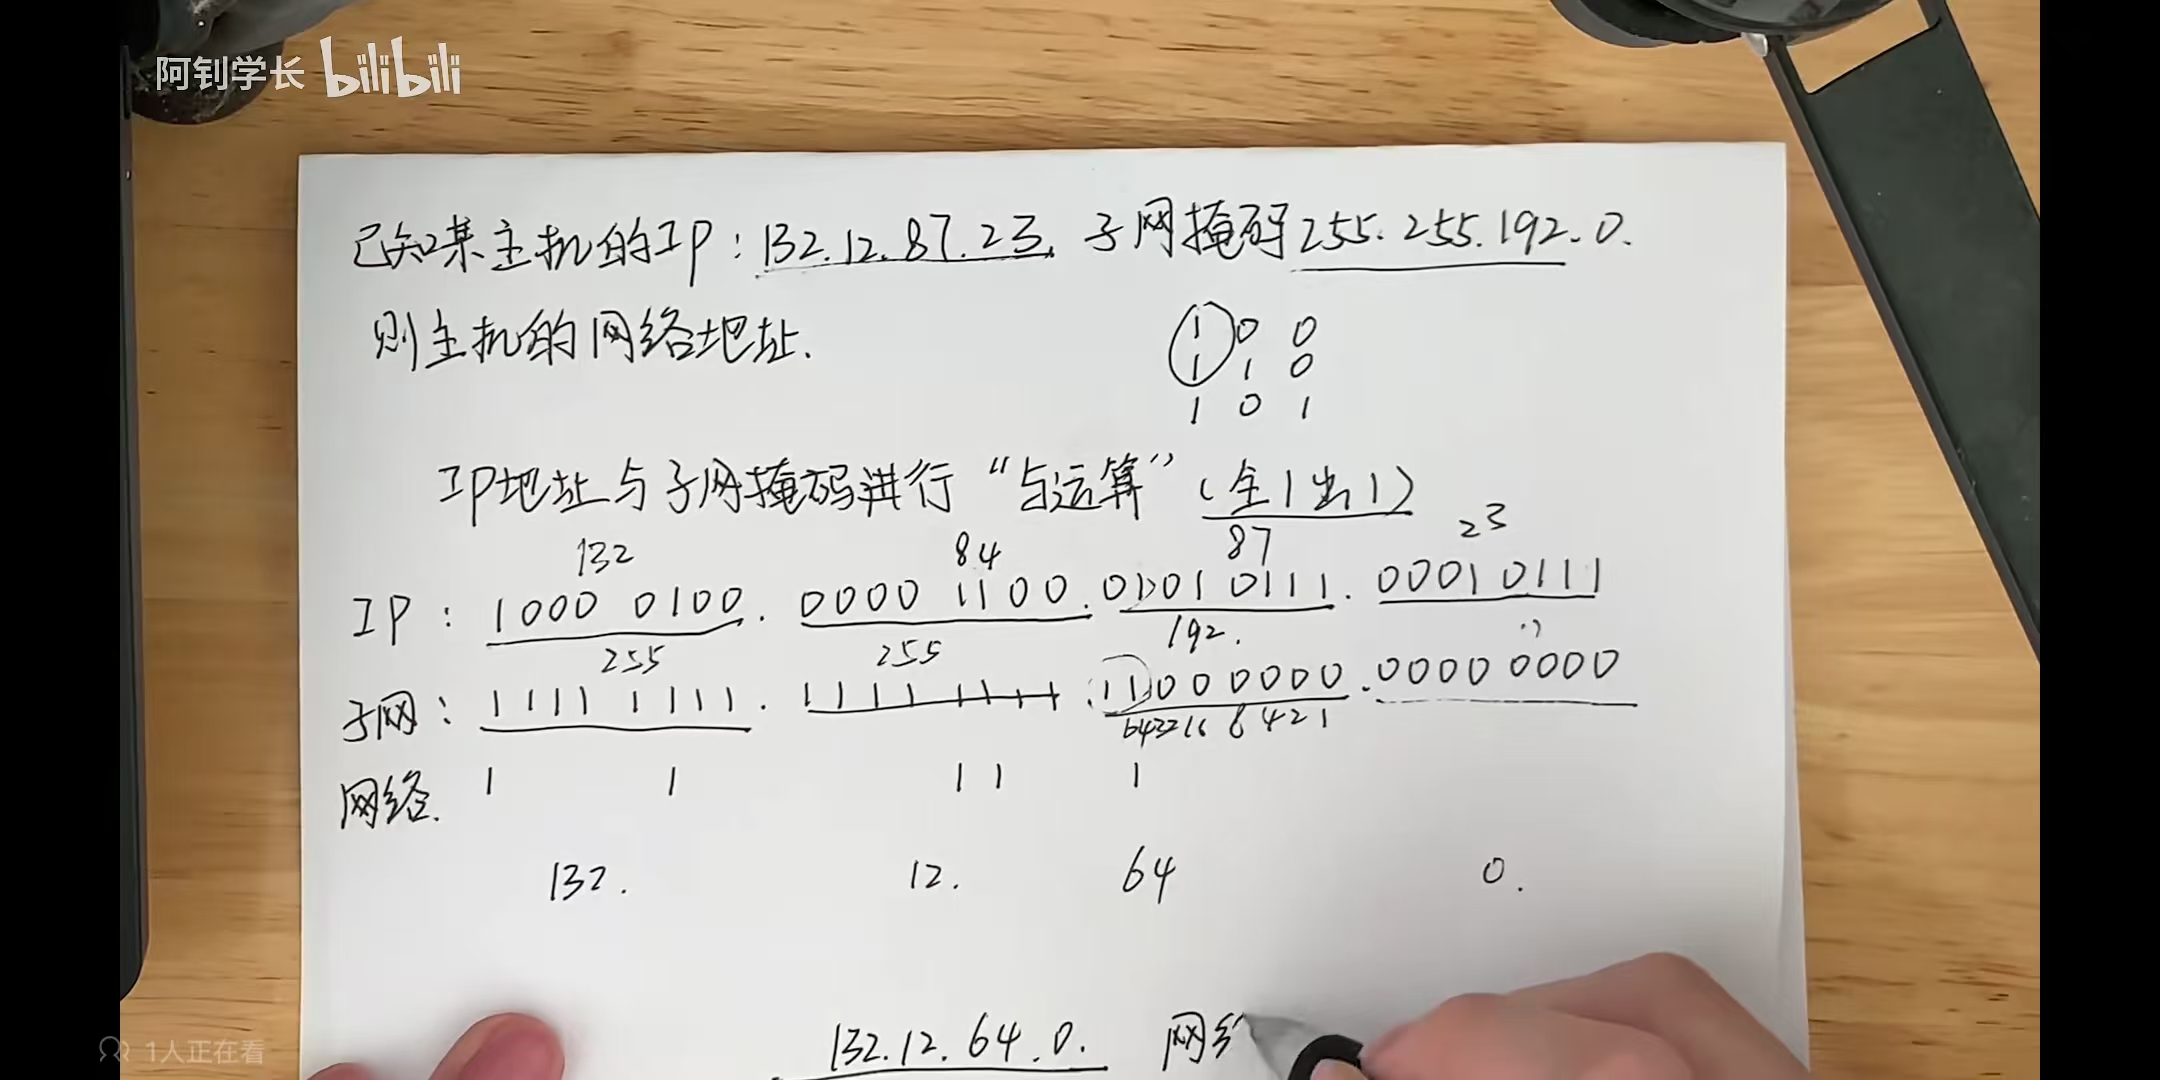 阿钊学长 bilibili
已知某主机的IP：132.12.87.23. 子网掩码255.255.192.0.
则主机的网络地址.
1 0 0
1 1 0
1 0 1
IP地址与子网掩码进行“与运算”（全1出1）
132 84 87 23
IP： 1000 0100. 0000 1100. 0101 0111. 0001 0111
255 255 192.
子网： 1111 1111. 1111 1111. 11000000.0000 0000
64 32 16 8 4 2 1
网络. 1 1 1 1 1
132. 12. 64 0.
132.12.64.0. 网
1人正在看